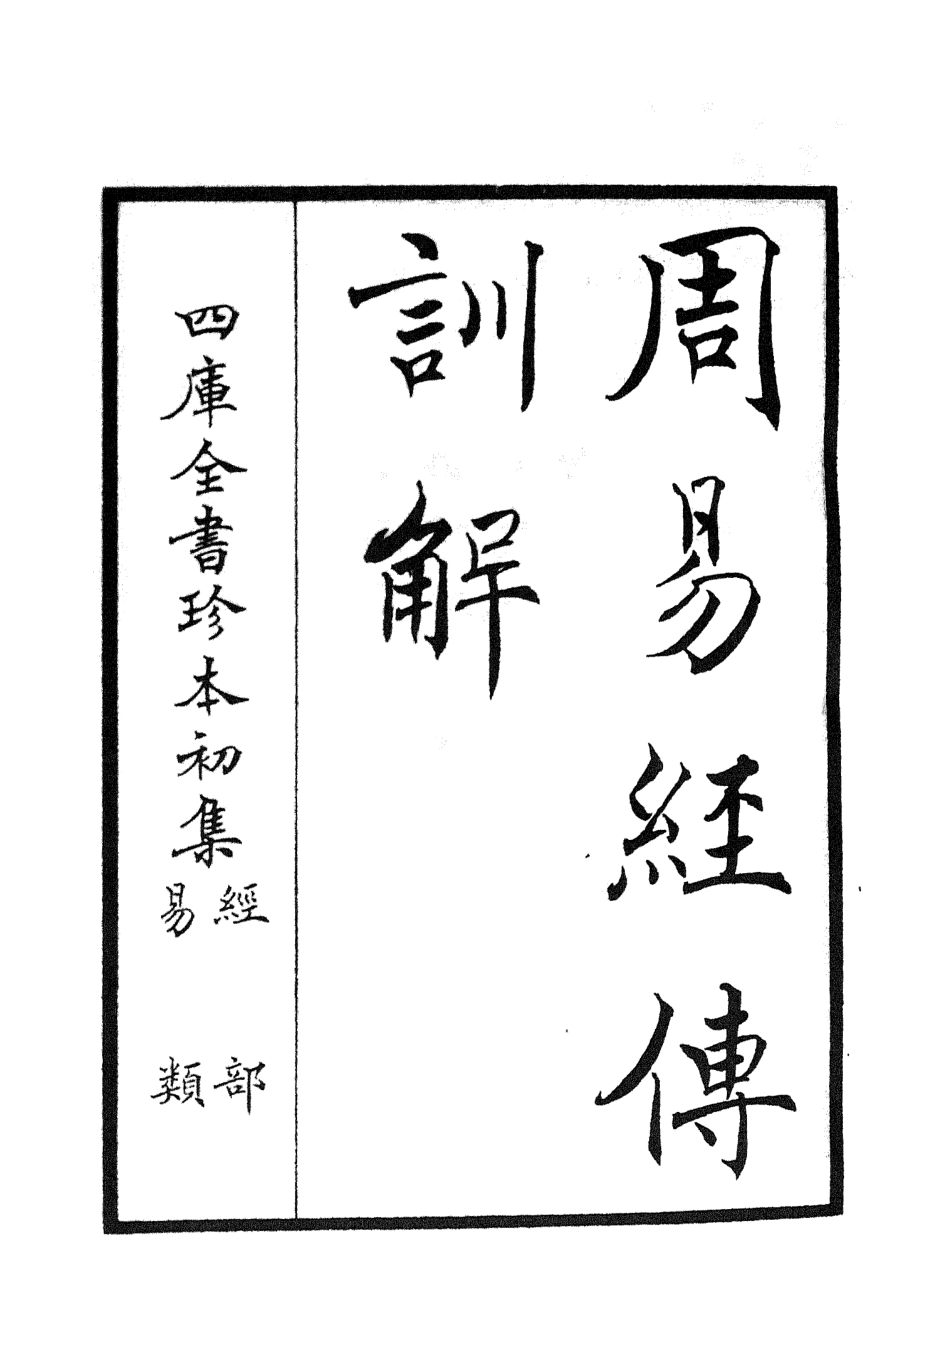 周易經傳
訓解
四庫全書珍本初集
經部
易類